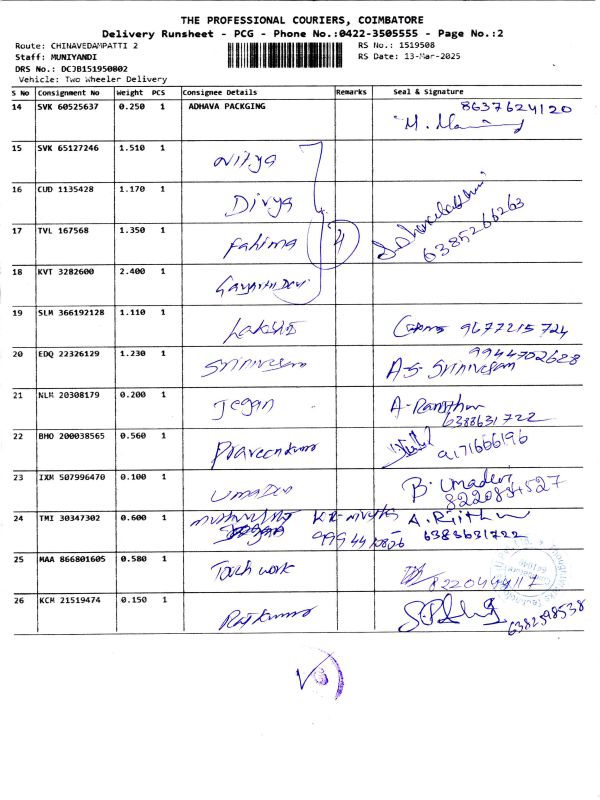 THE PROFESSIONAL COURIERS, COIMBATORE
Delivery Runsheet - PCG - Phone No.:0422-3505555 - Page No.:2
Route: CHINAVEDAMPATTI 2 RS No.: 1519508
Staff: MUNIYANDI RS Date: 13-Mar-2025
DRS No.: DCJB151950802
Vehicle: Two Wheeler Delivery
S No Consignment No Weight PCS Consignee Details Remarks Seal & Signature
14 SVK 60525637 0.250 1 ADHAVA PACKGING 8637624120
15 SVK 65127246 1.510 1
16 CUD 1135428 1.170 1 Divya
17 TVL 167568 1.350 1 Fahima 4 6385266263
18 KVT 3282600 2.400 1 Devi
19 SLM 366192128 1.110 1 9677215724
20 EDQ 22326129 1.230 1 Srinivasan A-S- Srinivasan 9944702628
21 NLM 20308179 0.200 1 Jegan
22 BHO 200038565 0.560 1 Praveenkumar 9171666196
23 IXM 507996470 0.100 1 Umadevi B. Umadevi
24 TMI 30347302 0.600 1 6383631722
25 MAA 866801605 0.580 1 Touch work
26 KCM 21519474 0.150 1 Rajkumar 6382598538